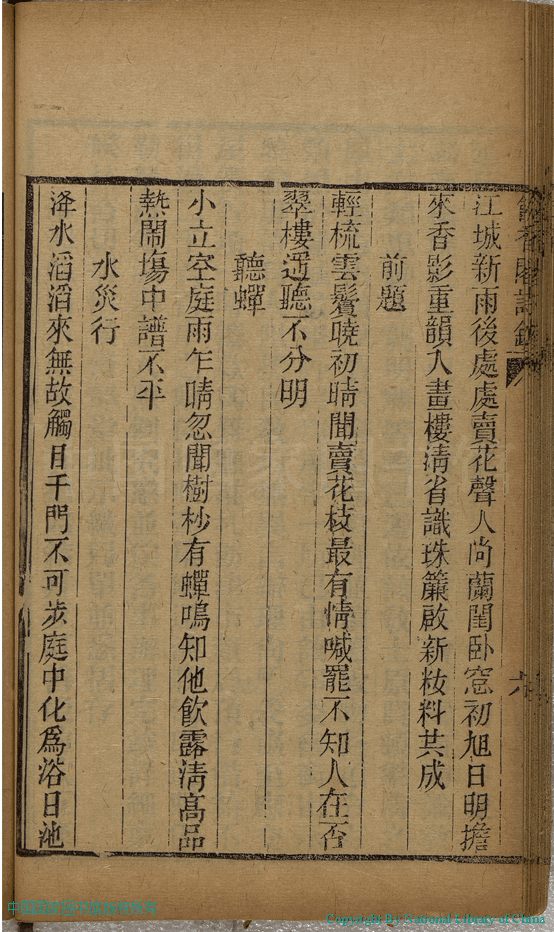 江城新雨後處處賣花聲人尚蘭閨卧窓初旭日明擔
來香影重韻入畫樓清省識珠簾啟新妝料共成
前題
輕梳雲鬢曉初晴聞賣花枝最有情喊罷不知人在否
翠樓遥聽不分明
聽蟬
小立空庭雨乍晴忽聞樹杪有蟬鳴知他飲露清高品
熱鬧塲中譜不平
水災行
洚水滔滔來無故觸目千門不可步庭中化爲浴日池
Copyright By National Library of China